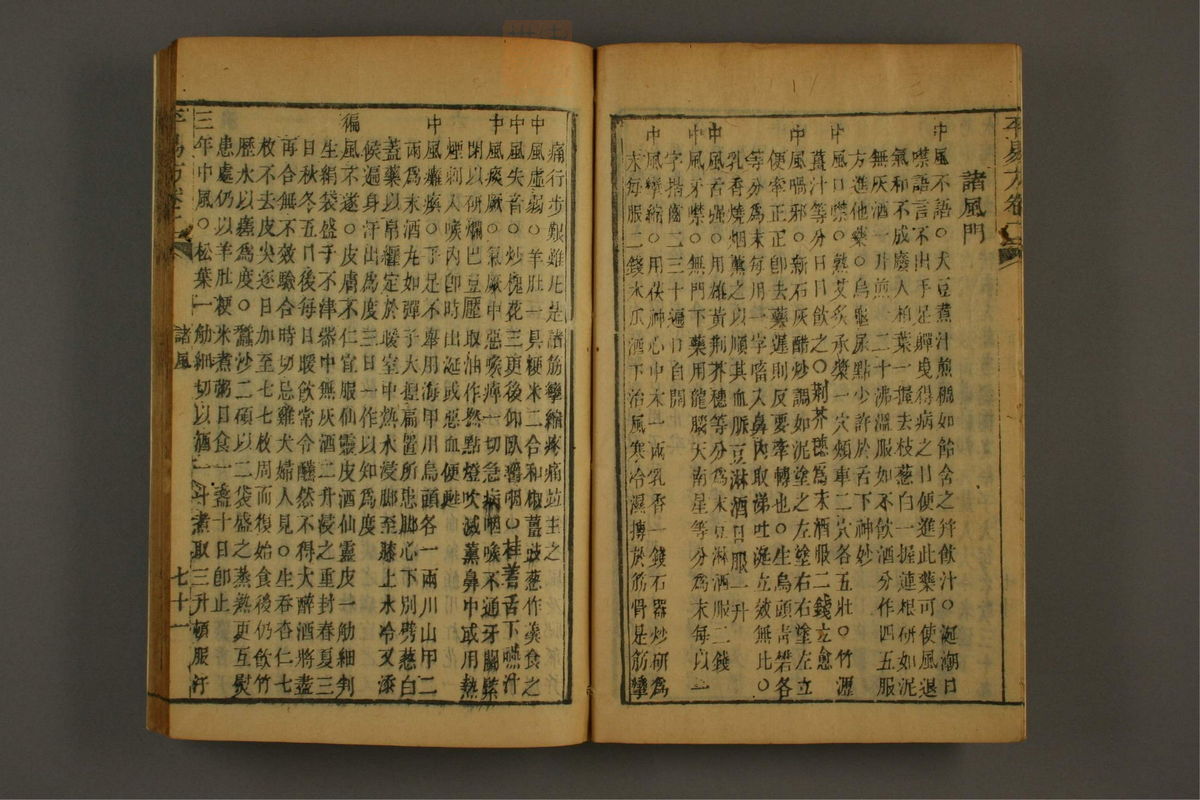 諸風門
中風不語○大豆煮汁煎稠如飴含之并飲汁○涎潮口
噤語言不出手足嚲曳得病之日便進此藥可使風退
氣和不成廢人柏葉一握去枝葱白一握連根研如泥
無灰酒一升煎一二十沸溫服如不飲酒分作四五服
方進他藥○烏龜尿點少許於舌下神妙
中風口噤○熱艾灸承漿一穴頰車二穴各五壯○竹瀝
薑汁等分日日飲之○荊芥穗為末酒服二錢立愈
中風喎邪○新石灰醋炒調如泥塗之左塗右右塗左立
便牽正正即去藥遲則反要牽轉也○生烏頭青礬各
等分為末每用一字㗜入鼻內取涕吐涎立效無比○
乳香燒烟薰之以順其血脈豆淋酒日服一升
中風舌強○用雄黃荊芥穗等分為末豆淋酒服二錢
中風牙噤○無門下藥用龍腦天南星等分為末每以一
字揩齒二三十遍口自開
中風攣縮○用茯神心中木一兩乳香一錢石器炒研為
末每服二錢木瓜酒下治風寒冷濕搏於筋骨足筋攣
痛行步艱難凡是諸筋攣縮疼痛並主之
中風虛弱○羊肚一具粳米二合和椒薑豉葱作羹食之
中風失音○炒槐花三更後仰臥嚼咽○桂著舌下嚥汁
中風痰厥○氣厥中惡喉痺一切急病咽喉不通牙關緊
閉以研爛巴豆壓取油作撚點燈吹滅薰鼻中或用熱
煙刺入喉內即時出涎或惡血便甦
中風癱瘓○手足不舉用海甲川烏頭各一兩川山甲二
兩為末酒丸如彈子大揑扁置所患脚心下別劈葱白
蓋藥以帛纏定於暖室中熱水浸脚至膝上水冷又添
候遍身汗出為度三日一作以知為度
偏風不遂○皮膚不仁宜服仙靈皮酒仙靈皮一觔細剉
生絹袋盛于不津器中無灰酒二升浸之重封春夏三
日秋冬五日後每日暖飲常令醺然不得大醉酒將盡
再合無不效驗合時切忌雞犬婦人見○生吞杏仁七
枚不去皮尖逐日加至七七枚周而復始食後仍飲竹
歷水以瘥為度○蠶沙二碩以二袋盛之蒸熱更互熨
患處仍以羊肚粳米煮粥日食一盞十日即止
三年中風○松葉一觔細切以酒一斗煮取三升頓服汗
諸風
七十一